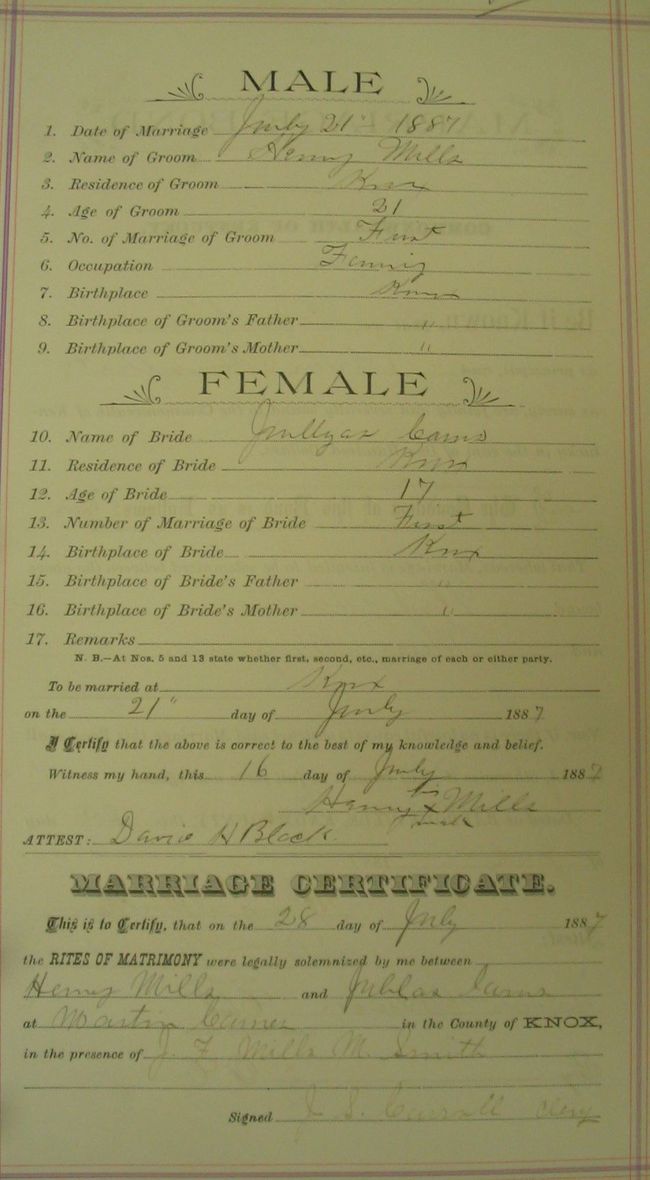 MALE
1. Date of Marriage July 21" 1887
2. Name of Groom Henry Mills
3. Residence of Groom Knox
4. Age of Groom 21
5. No. of Marriage of Groom First
6. Occupation
7. Birthplace Knox
8. Birthplace of Groom's Father "
9. Birthplace of Groom's Mother "
FEMALE
10. Name of Bride
11. Residence of Bride Knox
12. Age of Bride 17
13. Number of Marriage of Bride First
14. Birthplace of Bride Knox
15. Birthplace of Bride's Father "
16. Birthplace of Bride's Mother "
17. Remarks
N. B.—At Nos. 5 and 13 state whether first, second, etc., marriage of each or either party.
To be married at Knox
on the 21" day of July 1887
I Certify that the above is correct to the best of my knowledge and belief.
Witness my hand, this 16 day of July 1887
his
Henry x Mills
mark
ATTEST: David H Black
MARRIAGE CERTIFICATE.
This is to Certify, that on the 28 day of July 1887
the RITES OF MATRIMONY were legally solemnized by me between
Henry Mills and
at Martin in the County of KNOX,
in the presence of J. F. Mills M. Smith
Signed J. S.